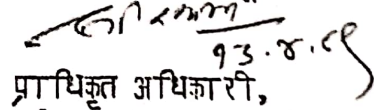 १३.४.८९
प्राधिकृत अधिकारी,